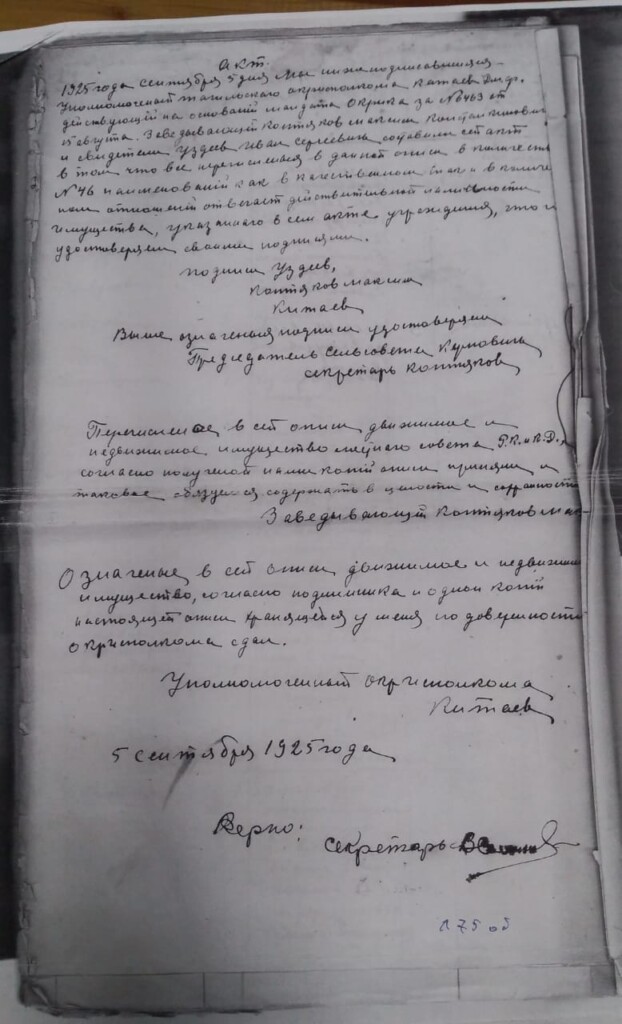 Акт.
1925 года сентября 5 дня Мы нижеподписавшияся
Уполномоченый тагильского окрисполкома Китаев
действующий на основании мандата Окрика за № 6463 от
15 августа. Заведывающий Котяков Максим Константинович
и свидетель Уздев Иван Сергеевич составили сей акт
в том что все перечисленая в данной описи в количестве
№ 46 наименований как в качественом так и в количе
ном отношении отвечает действительной наличности
имущества, указанного в сем акте учреждения, что и
удостоверяем своими подписями.
подписи Уздев,
Котяков Максим
Китаев
Выше означеныя подписи удостоверяем
Председатель Сельсовета
секретарь Котяков
Перечисленое в сей описи движимое и
недвижимое имущество совета Р.К. и К.Д.,
согласно полученой нами копи описи приняли и
таковое обязуемся содержать в целости и сохранности
Заведывающий Котяков Мак
Означеные в сей описи движимое и недвижим
имущество, согласно подлиника и одной копи
настоящей описи хранящейся у меня по доверености
окрисполкома сдал.
Уполномоченый окрисполкома
Китаев
5 сентября 1925 года
Верно: секретарь
175 об